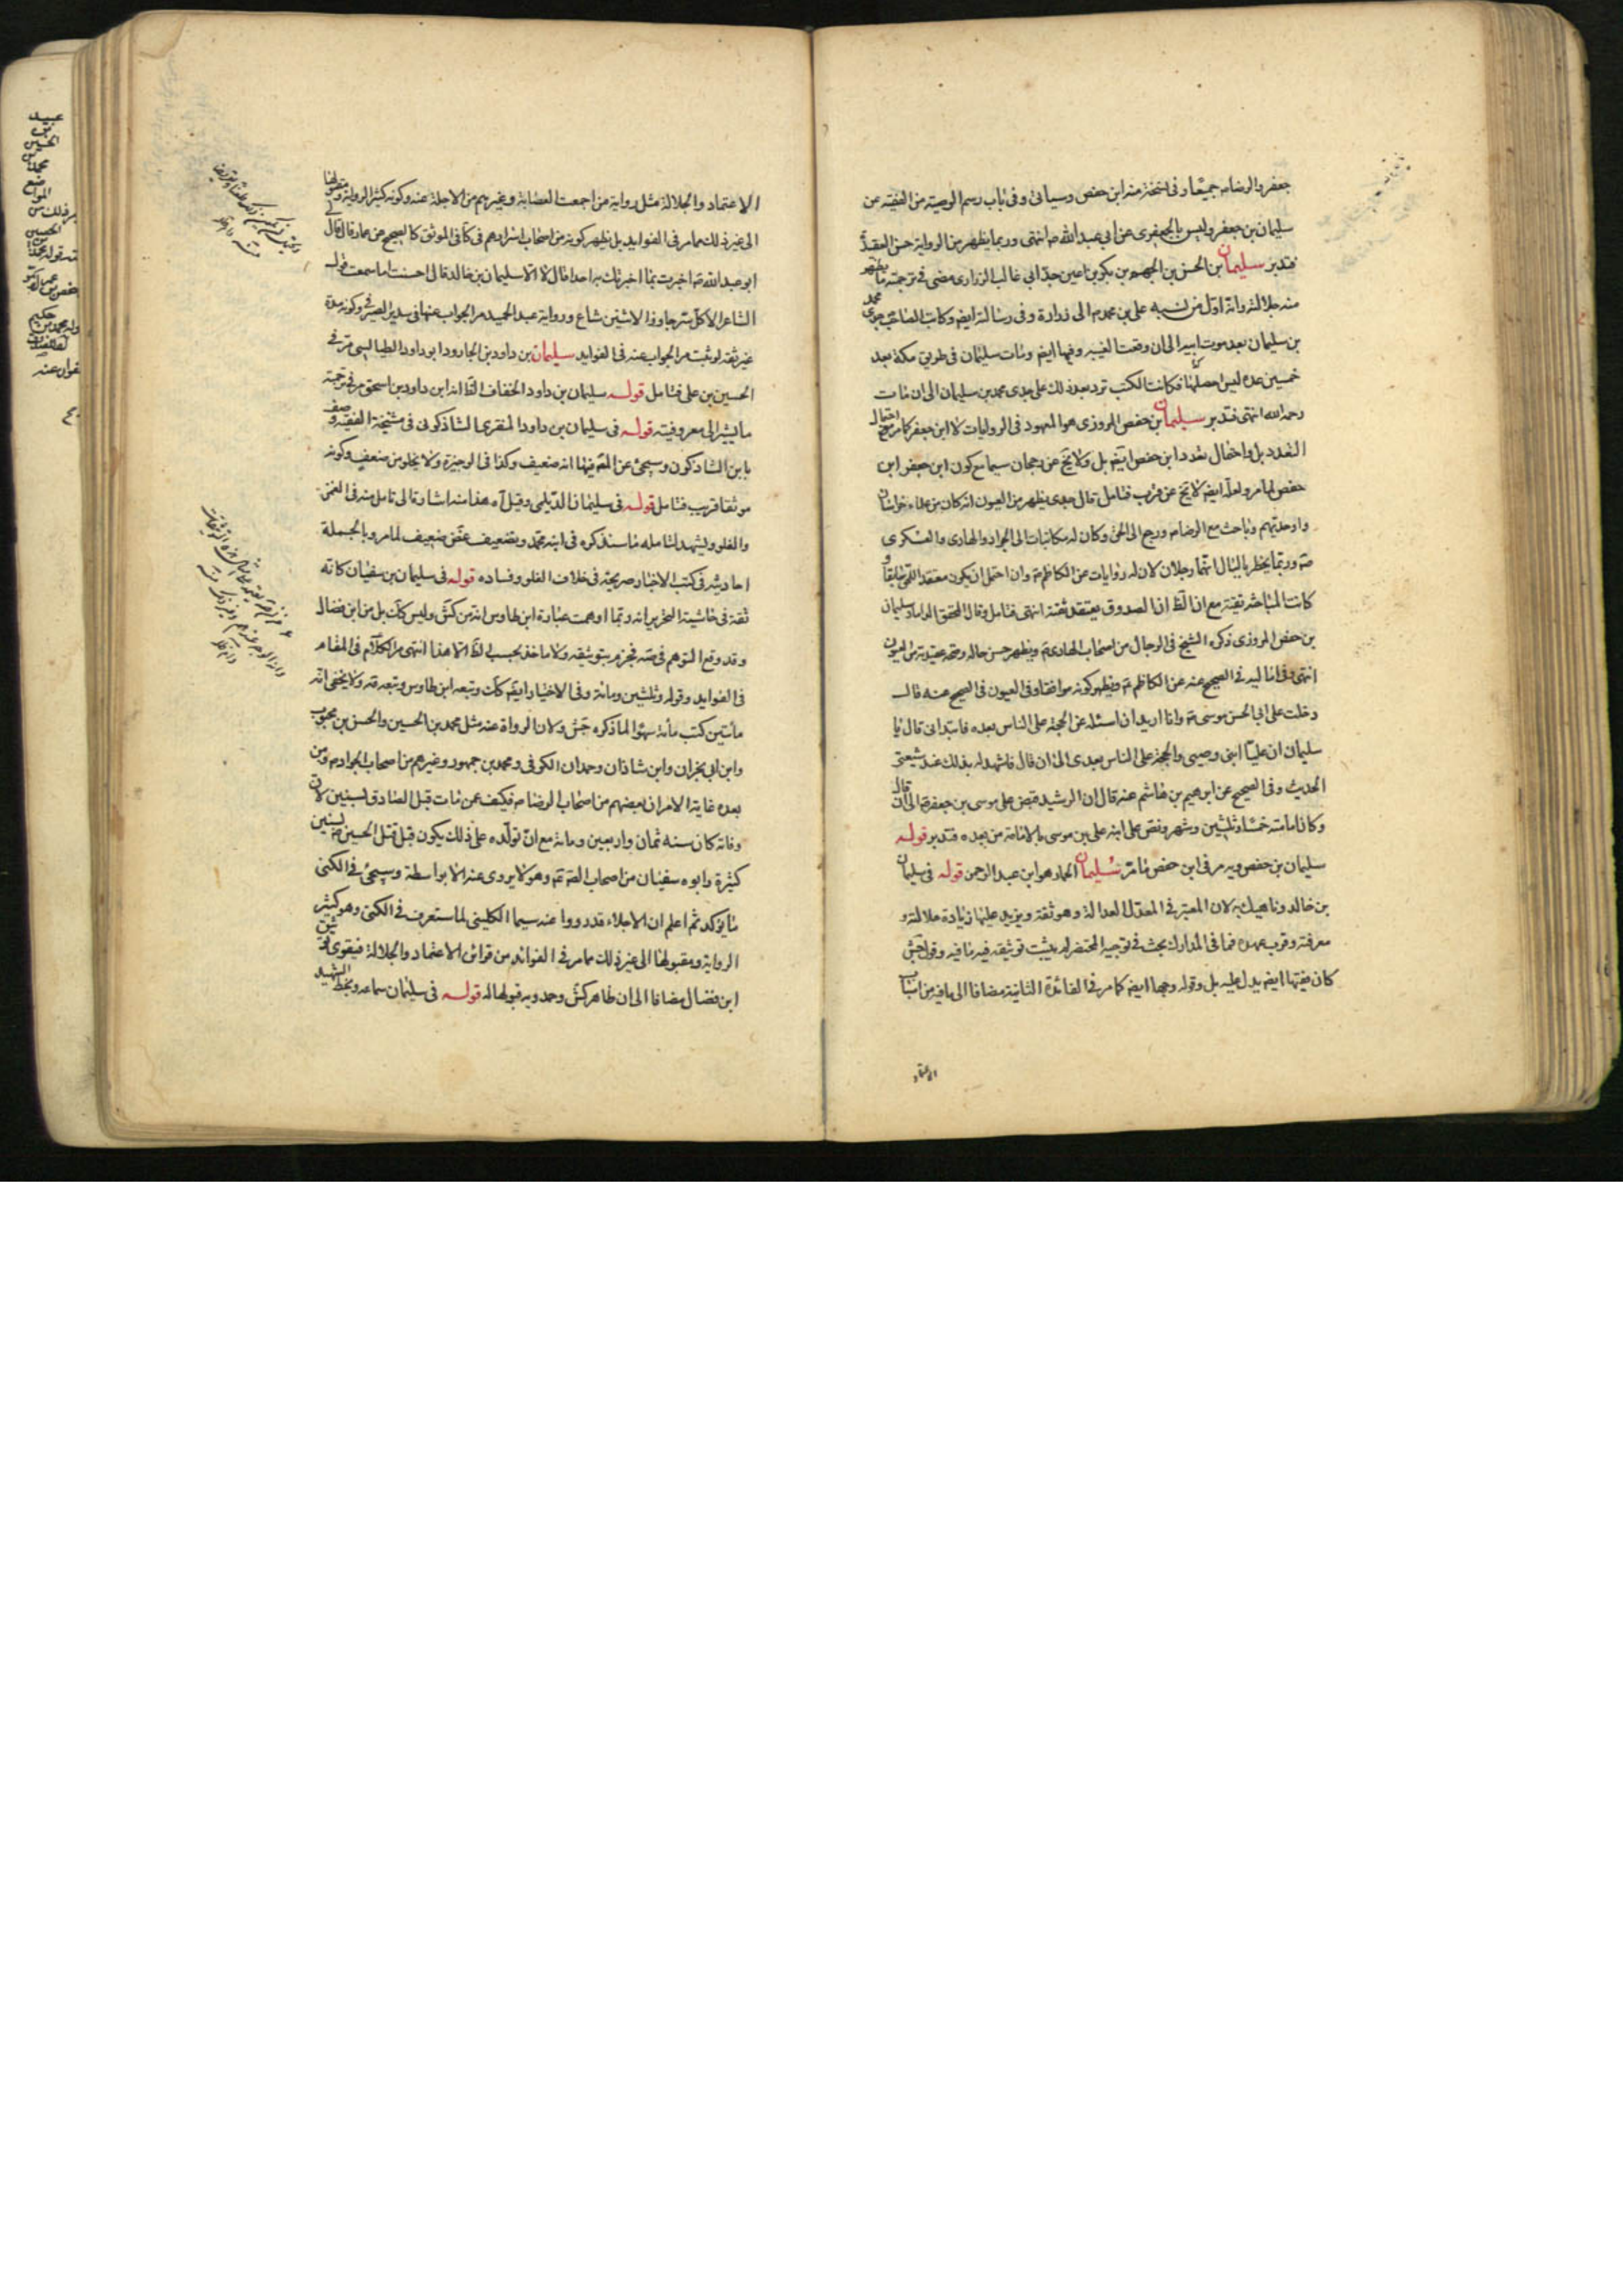 جعفر والرضا ع جميعا وفى نسخة منه ابن حفص وسياتى وفى باب رسم الوصية من الفقيه عن
سليمان بن جعفر وليس بالجعفرى عن ابي عبد الله ع انتهى وربما يظهر من الرواية حسن العقيدة
فتدبر سليمان بن الحسن بن الجهم بن بكير بن اعين جد ابي غالب الزرارى مضى فى ترجمته ما يظهر
منه جلالته وانه اول من نسبه على بن محمد ع الى زرارة وفى رسالته ايضا وكاتب الصاحب ع جدى محمد
بن سليمان بعد موت ابيه الى ان وقعت الغيبه وفيها ايضا ومات سليمان فى طريق مكة بعد
خمسين عدة ليس احصلها فكانت الكتب ترد بعد ذلك على جدى محمد بن سليمان الى ان مات
رحمه الله انتهى فتدبر سليمان بن حفص المروزى هو المعهود فى الروايات لا ابن جعفر كما مر مع احتمال
التعدد بل واحتمال تعدد ابن حفص ايضا بل ولا يخ عن رجحان سيما مع كون ابن جعفر ابن
حفص لما مر ولعله ايضا لا يخ عن قرب فتامل قال جدى يظهر من العيون انه كان من علماء خراسان
واوحديهم وباحث مع الرضا ع ورجع الى الحق وكان له مكاتبات الى الجواد والهادى والعسكرى
ع وربما يخطر بالبال انهما رجلان لان له روايات عن الكاظم ع وان احتمل ان يكون معتقد الحق سابقا و
كانت المباحثة تقية مع ان الظ ان الصدوق يعتقد ثقته انتهى فتامل وقال المحقق الداماد سليمان
بن حفص المروزى ذكره الشيخ فى الرجال من اصحاب الهادى ع ويظهر حسن حاله وصحة عقيدته من العيون
انتهى وفى اماليه فى الصحيح عنه عن الكاظم ع ويظهر كونه موافقا وفى العيون فى الصحيح عنه قال
دخلت على ابي الحسن موسى ع وانا اريد ان اسئله عن الحجة على الناس بعده فابتدانى قال يا
سليمان ان عليا ابنى ووصيى والحجة على الناس بعدى الى ان قال فاشهد له بذلك عند شيعتى
الحديث وفى الصحيح عن ابرهيم بن هاشم عنه قال ان الرشيد قبض على موسى بن جعفر ع الى ان قال
وكان امامته خمسا وثلثين وشهر ونص على ابنه على بن موسى بالامامة من بعده فتدبر قوله
سليمان بن حفصويه مر فى ابن حفص ما مر سليمان الحمار هو ابن عبد الرحمن قوله فى سليمان
بن خالد وناهيك به لان المعتبر فى المعدل العدالة وهو ثقة ويزيد عليها زيادة جلالته و
معرفته وقرب عهده فما فى المدارك بحث فى توجيه المختصر لم يثبت توثيقه فيه ما فيه وقول جش
كان فقيها ايضا يدل عليه بل وقوله وجها ايضا كما مر فى الفائدة الثانية مضافا الى ما فيه من اسباب
الاعتماد
الاعتماد والجلالة مثل رواية من اجمعت العصابة وغيرهم من الاجلة عنه وكونه كثير الرواية ومقبولها
الى غير ذلك مما مر فى الفوايد بل يظهر كونه من اصحاب اسرارهم فى كافى الموثق كالصحيح عن عمار قال قال لى
ابو عبد الله ع اخبرت بما اخبرتك به احدا قال لا الا سليمان بن خالد قال احسنت اما سمعت قول
الشاعر الا كل سر جاوز الاثنين شاع ورواية عبد الحميد مر الجواب عنها فى سدير الصيرفى وكونه مدة
غير ثقة لو ثبت مر الجواب عنه فى الفوايد سليمان بن داود بن الجارود ابو داود الطيالسى مر فى
الحسين بن على فتامل قوله سليمان بن داود الخفاف الظ انه ابن داود بن اسحق مر فى ترجمته
ما يشير الى معروفيته قوله فى سليمان بن داود المنقرى الشاذكونى فى مشيخة الفقيه وصف
بابن الشاذكون وسيجئ عن المص فيها انه ضعيف وكذا فى الوجيزة ولا يخلو من ضعف وكونه
موثقا قريب فتامل قوله فى سليمان الديلمى وقيل آه هذا منه اشارة الى تامل منه فى الغمز
والغلو ويشهد لتامله ما سنذكره فى ابنه محمد وبتضعيف غض ضعيف لما مر وبالجملة
احاديثه فى كتب الاخبار صريحة فى خلاف الغلو وفساده قوله فى سليمان بن سفيان كانه
ثقة فى حاشية التحرير انه ربما اوهمت عبارة ابن طاوس انه من كش وليس كك بل من ابن فضال
وقد وقع التوهم فى صه فجزم بتوثيقه ولا ماخذ بحسب الظ الا هذا انتهى مر الكلام فى المقام
فى الفوايد وقوله وثلثين ومائة وفى الاختيار ايضا كك وتبعه ابن طاوس وتبعه قه ولا يخفى انه
مأتين كتب مأة سهوا لما ذكره جش ولان الرواة عنه مثل محمد بن الحسين والحسن بن محبوب
وابن ابي نجران وابن شاذان وحمدان الكوفى ومحمد بن جمهور وغيرهم من اصحاب الجواد ع ومن
بعده غاية الامر ان بعضهم من اصحاب الرضا ع فكيف عمن مات قبل الصادق بسنين لان
وفاته كان سنه ثمان واربعين ومائة مع ان تولده على ذلك يكون قبل قتل الحسين ع بسنين
كثيرة وابوه سفيان من اصحاب الصه ع وهو لا يروى عنه الا بواسطة وسيجئ فى الكنى
ما يؤكد ثم اعلم ان الاجلاء قد رووا عنه سيما الكلينى لما ستعرف فى الكنى وهو كثير
الرواية ومقبولها الى غير ذلك مما مر فى الفوائد من قرائن الاعتماد والجلالة فيقوى توثيق
ابن فضال مضافا الى ان ظاهر كش وحمدويه قبولها له قوله فى سليمان سماعه وبخط الشهيد